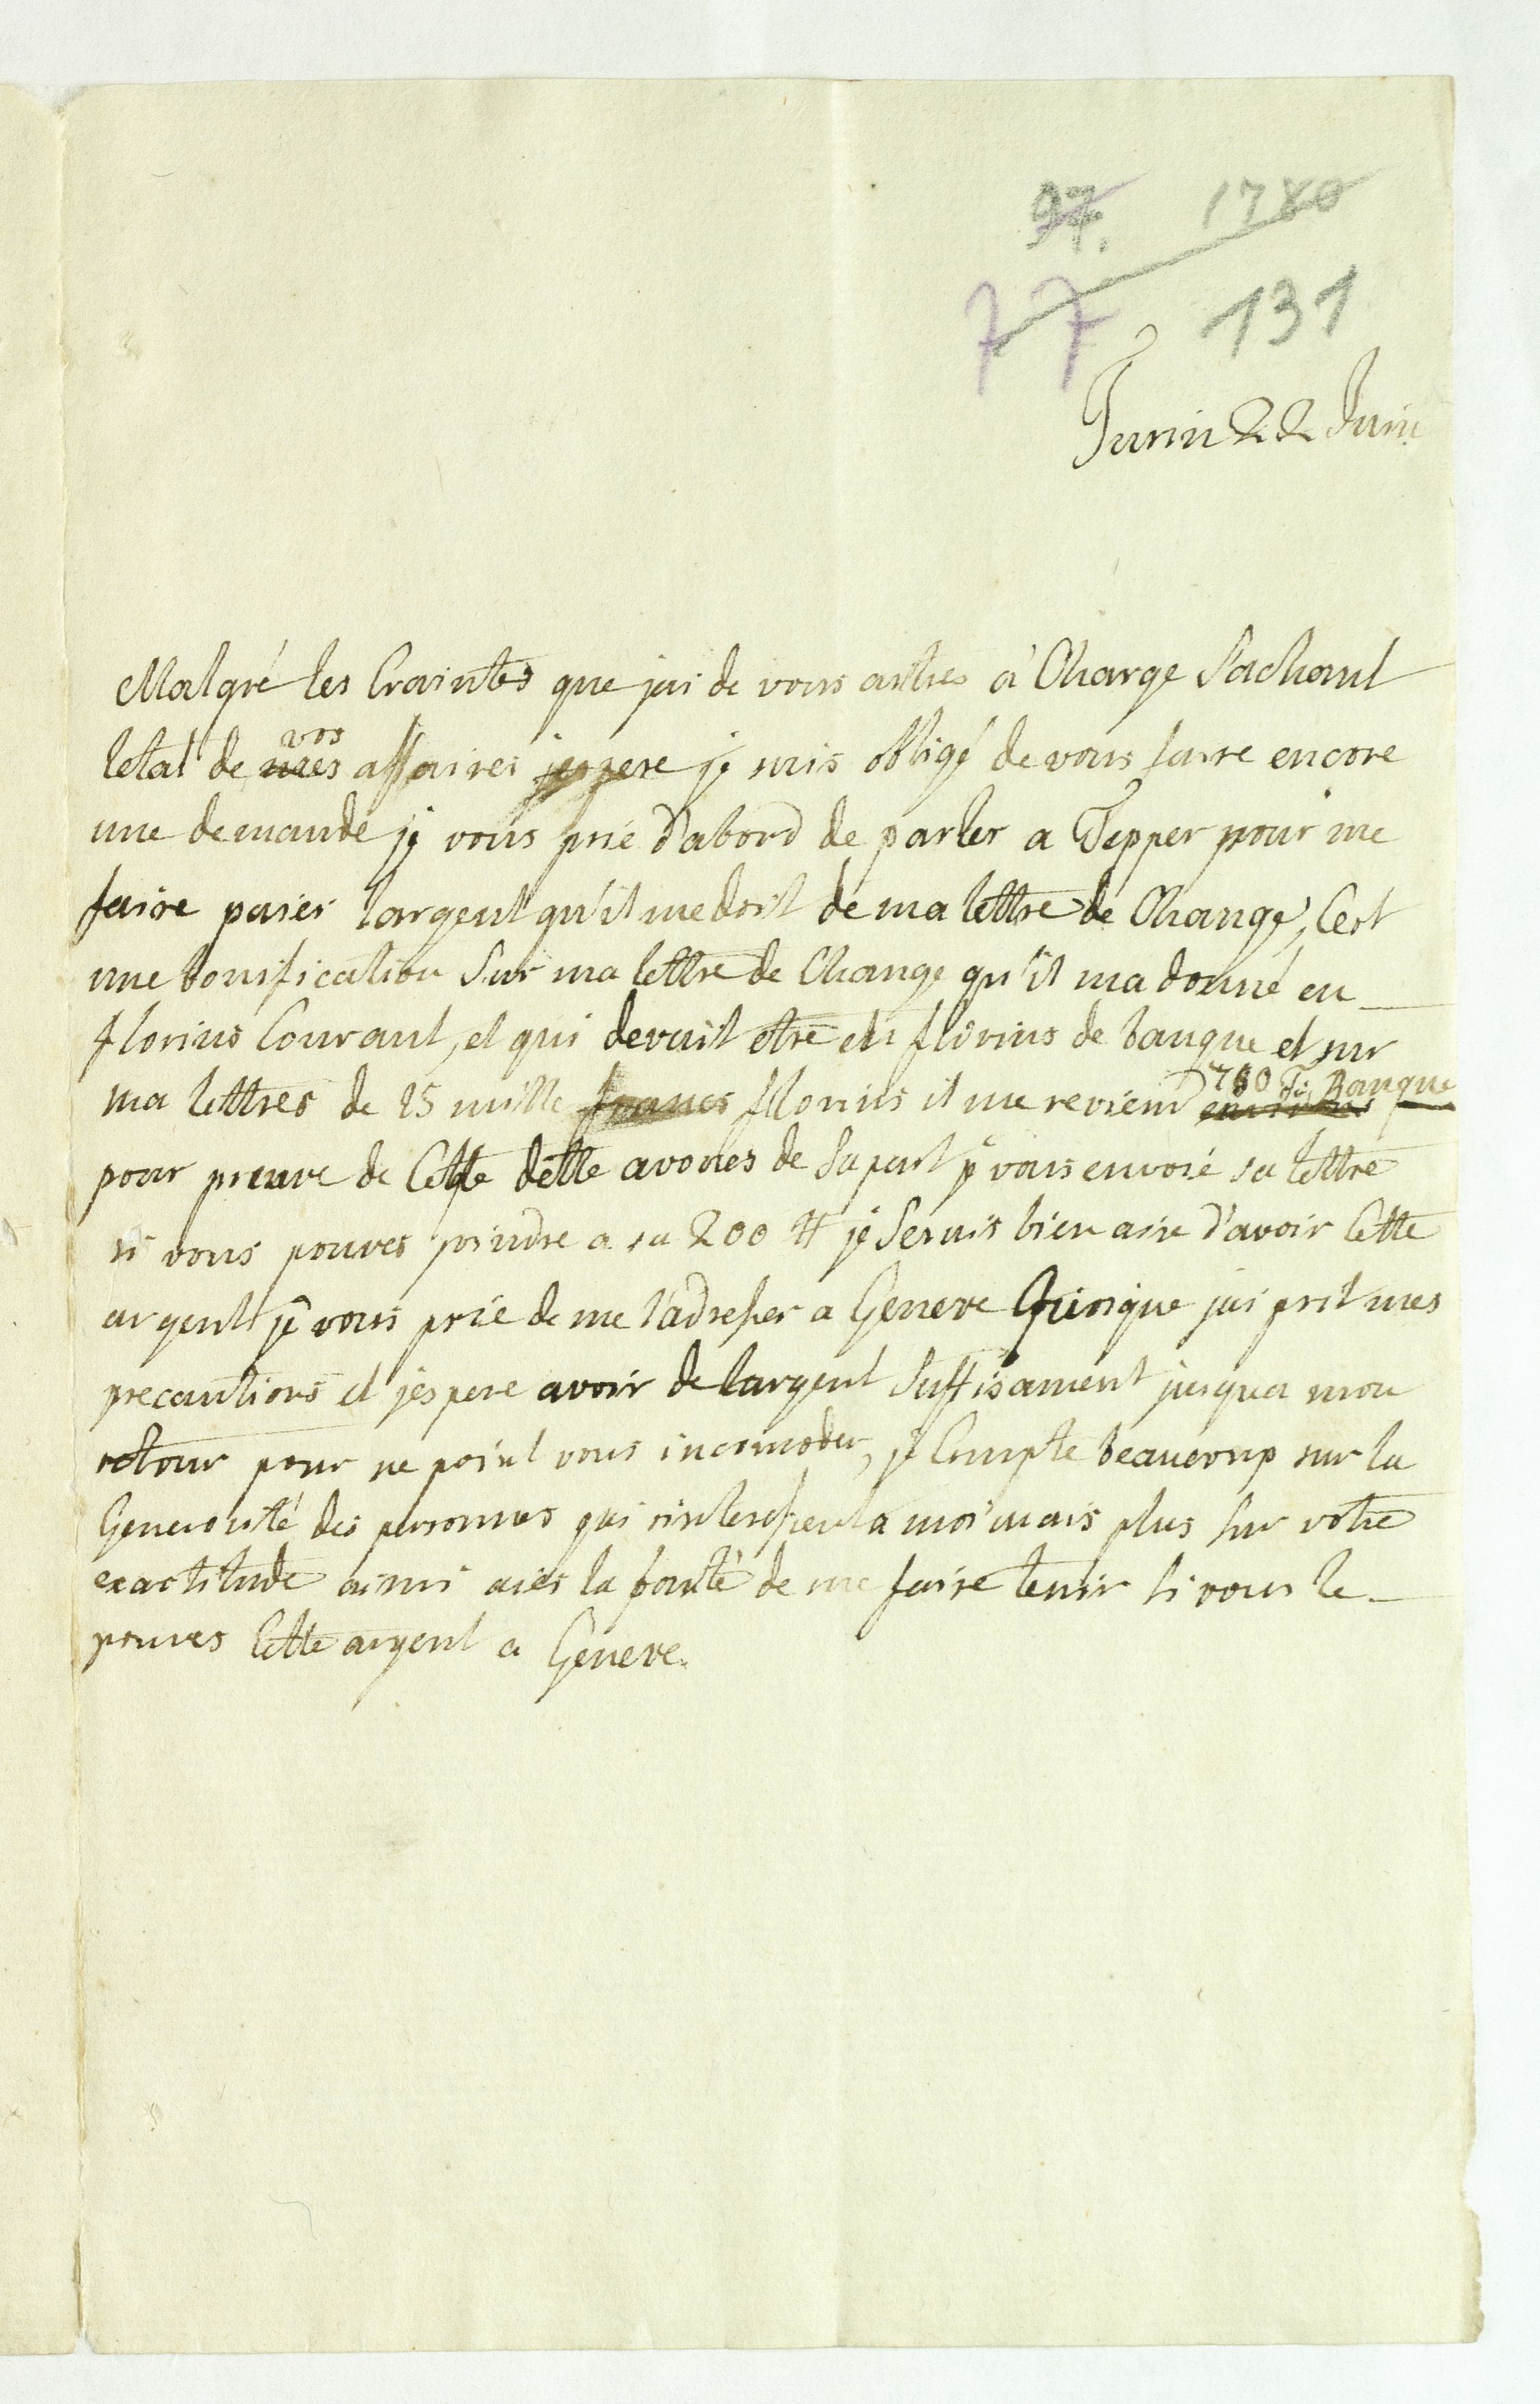 97. 1780
77 131
Turin 22 Juin
Malgré les Craintes que jai de vous aitre à Charge Sachant
vos
letat de mes affaires jespere je suis obligé de vous faire encore
une demande je vous prie d'abord de parler a Tepper pour me
faire paier largent qu'il me doit de ma lettre de Change, Cest
une bonification Sur ma lettre de Change qu'il ma donné en
florins Courant, et qui devait etre en florins de banque et sur
750 Fl: Banque
ma lettres de 15 mille francs fllorins il me reviend
pour preuve de Cette dette avoues de Sa part je vous envoié sa lettre
si vous pouves joindre a sa 200 # je Serais bien aise d'avoir Cette
argent je vous prie de me l'adresser a Geneve Quoique jai prit mes
precautions et jespere avoir de largent Suffisament jusqua mon
retour pour ne point vous incomoder, je Compte beaucoup sur la
Generosité des personnes qui sinteressent a moi mais plus sur votre
exactitude ainsi aies la bonté de me faire tenir si vous le
pouves Cette argent a Geneve.